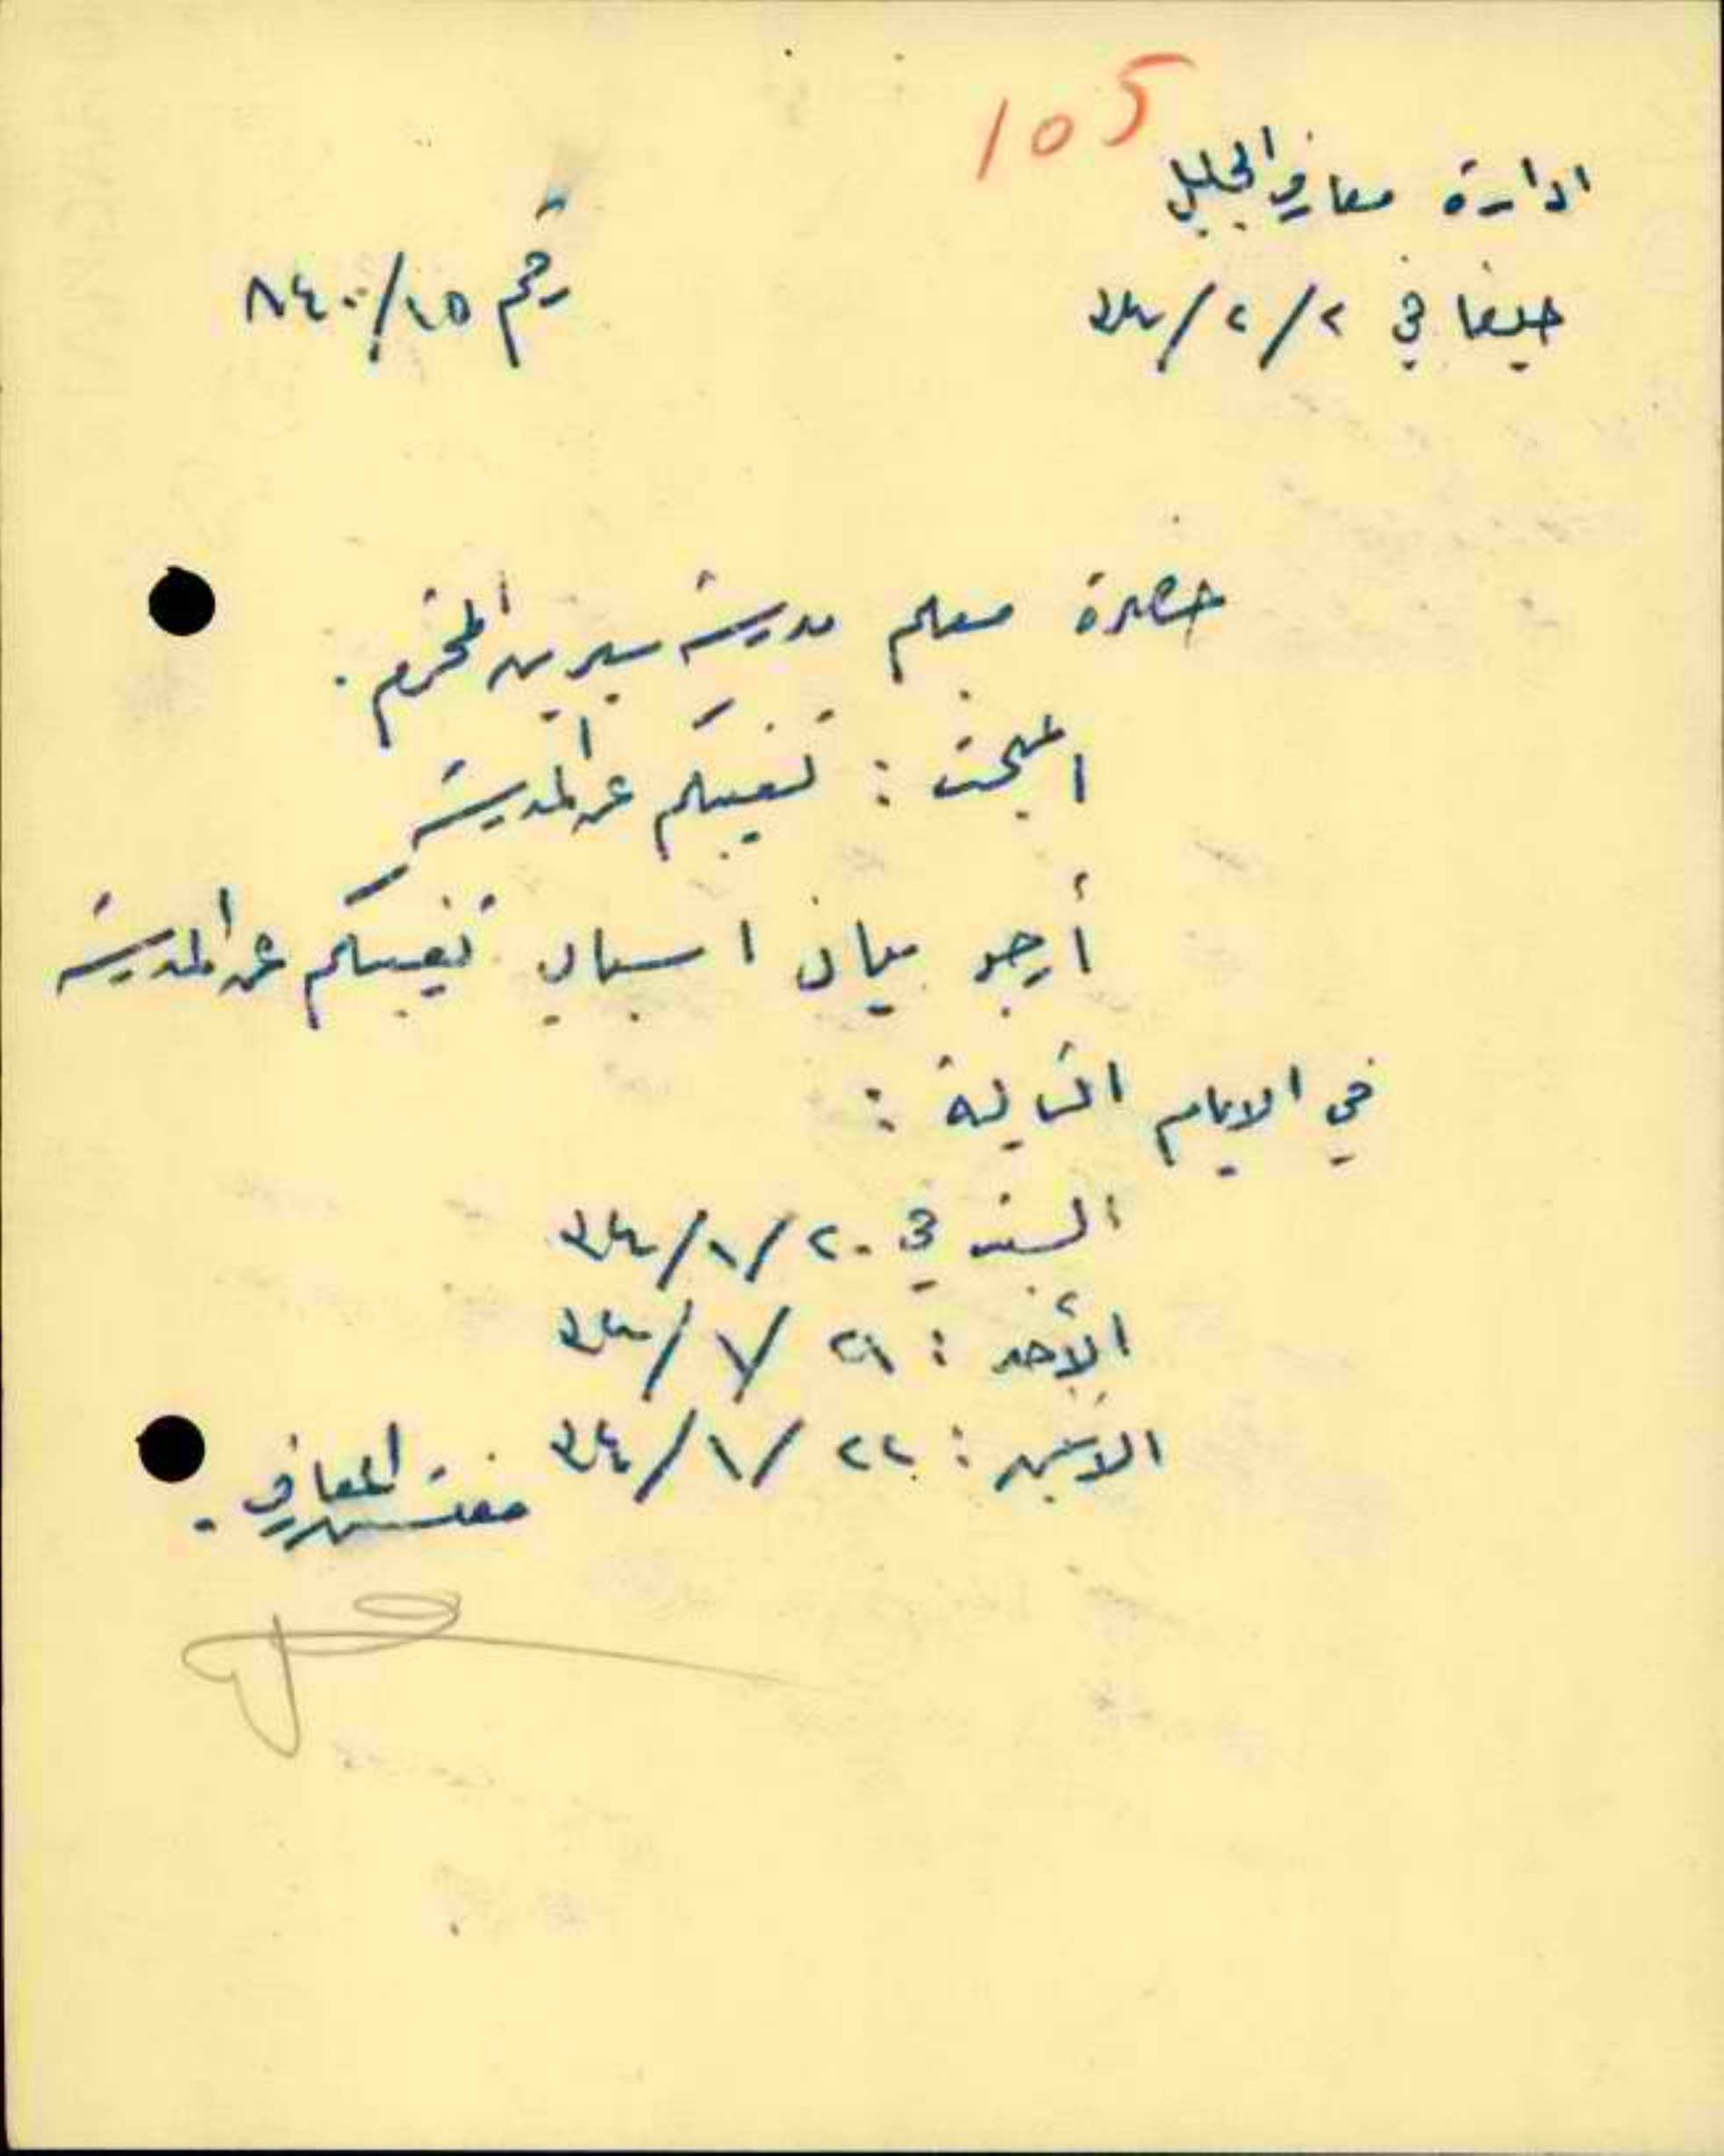 105
ادارة معارف الجليل
حيفا في ٢/٢/٣٤
رقم ٨٤٠/١٥
حضرة معلم مدرسة سيرين المحترم.
المبحث : تغيبكم عن المدرسة
أرجو بيان اسباب تغيبكم عن المدرسة
في الايام التالية :
السبت في ٢٠/١/٣٤
الأحد : ٢١/١/٣٤
الاثنين : ٢٢/١/٣٤
مفتش المعارف.